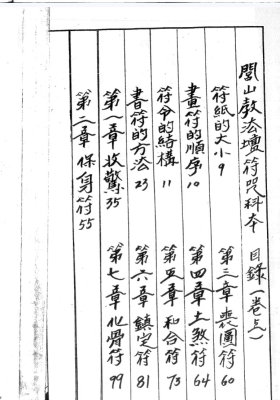 閭山教法壇符咒科本 目錄(卷㐧)
符紙的大小9
畫符的順序10
符令的結構11
書符的方法23
第一章收驚35
第二章保身符55
第三章喪圖符60
第四章土煞符64
第五章和合符73
第六章鎮定符81
第七章化骨符99